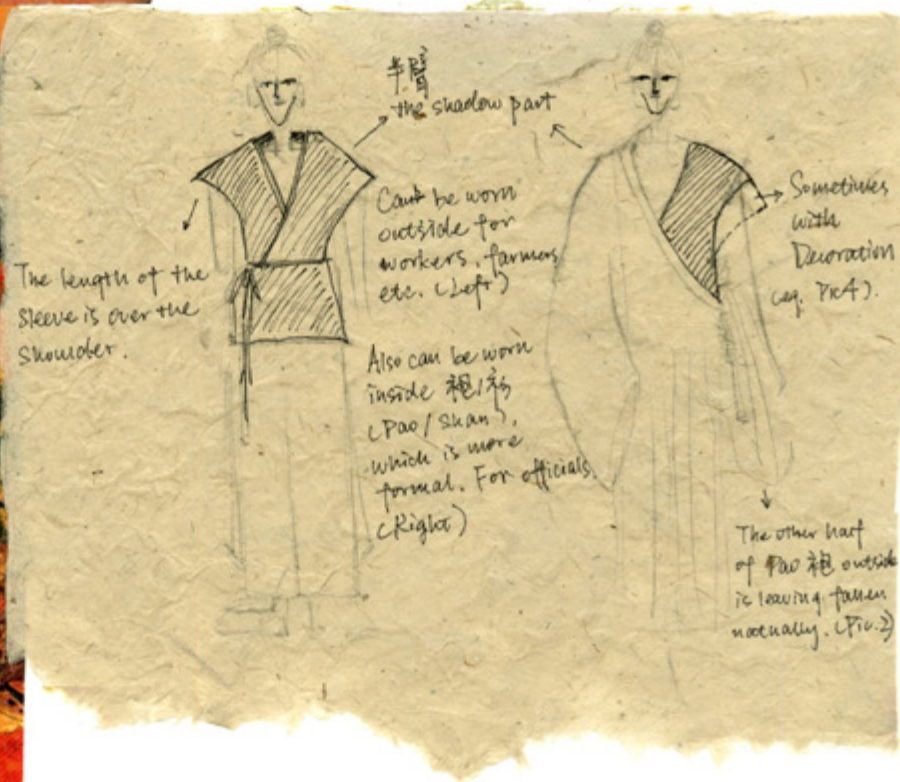 半臂
the shadow part
The length of the
sleeve is over the
shoulder.
Can be worn
outside for
workers, farmers
etc. (Left)
Also can be worn
inside 袍/衫
(Pao/Shan),
which is more
formal. For officials.
(Right)
Sometimes
with
Decoration
(eg. Pic4).
The other half
of Pao 袍 outside
is leaving fallen
natually. (Pic.2)